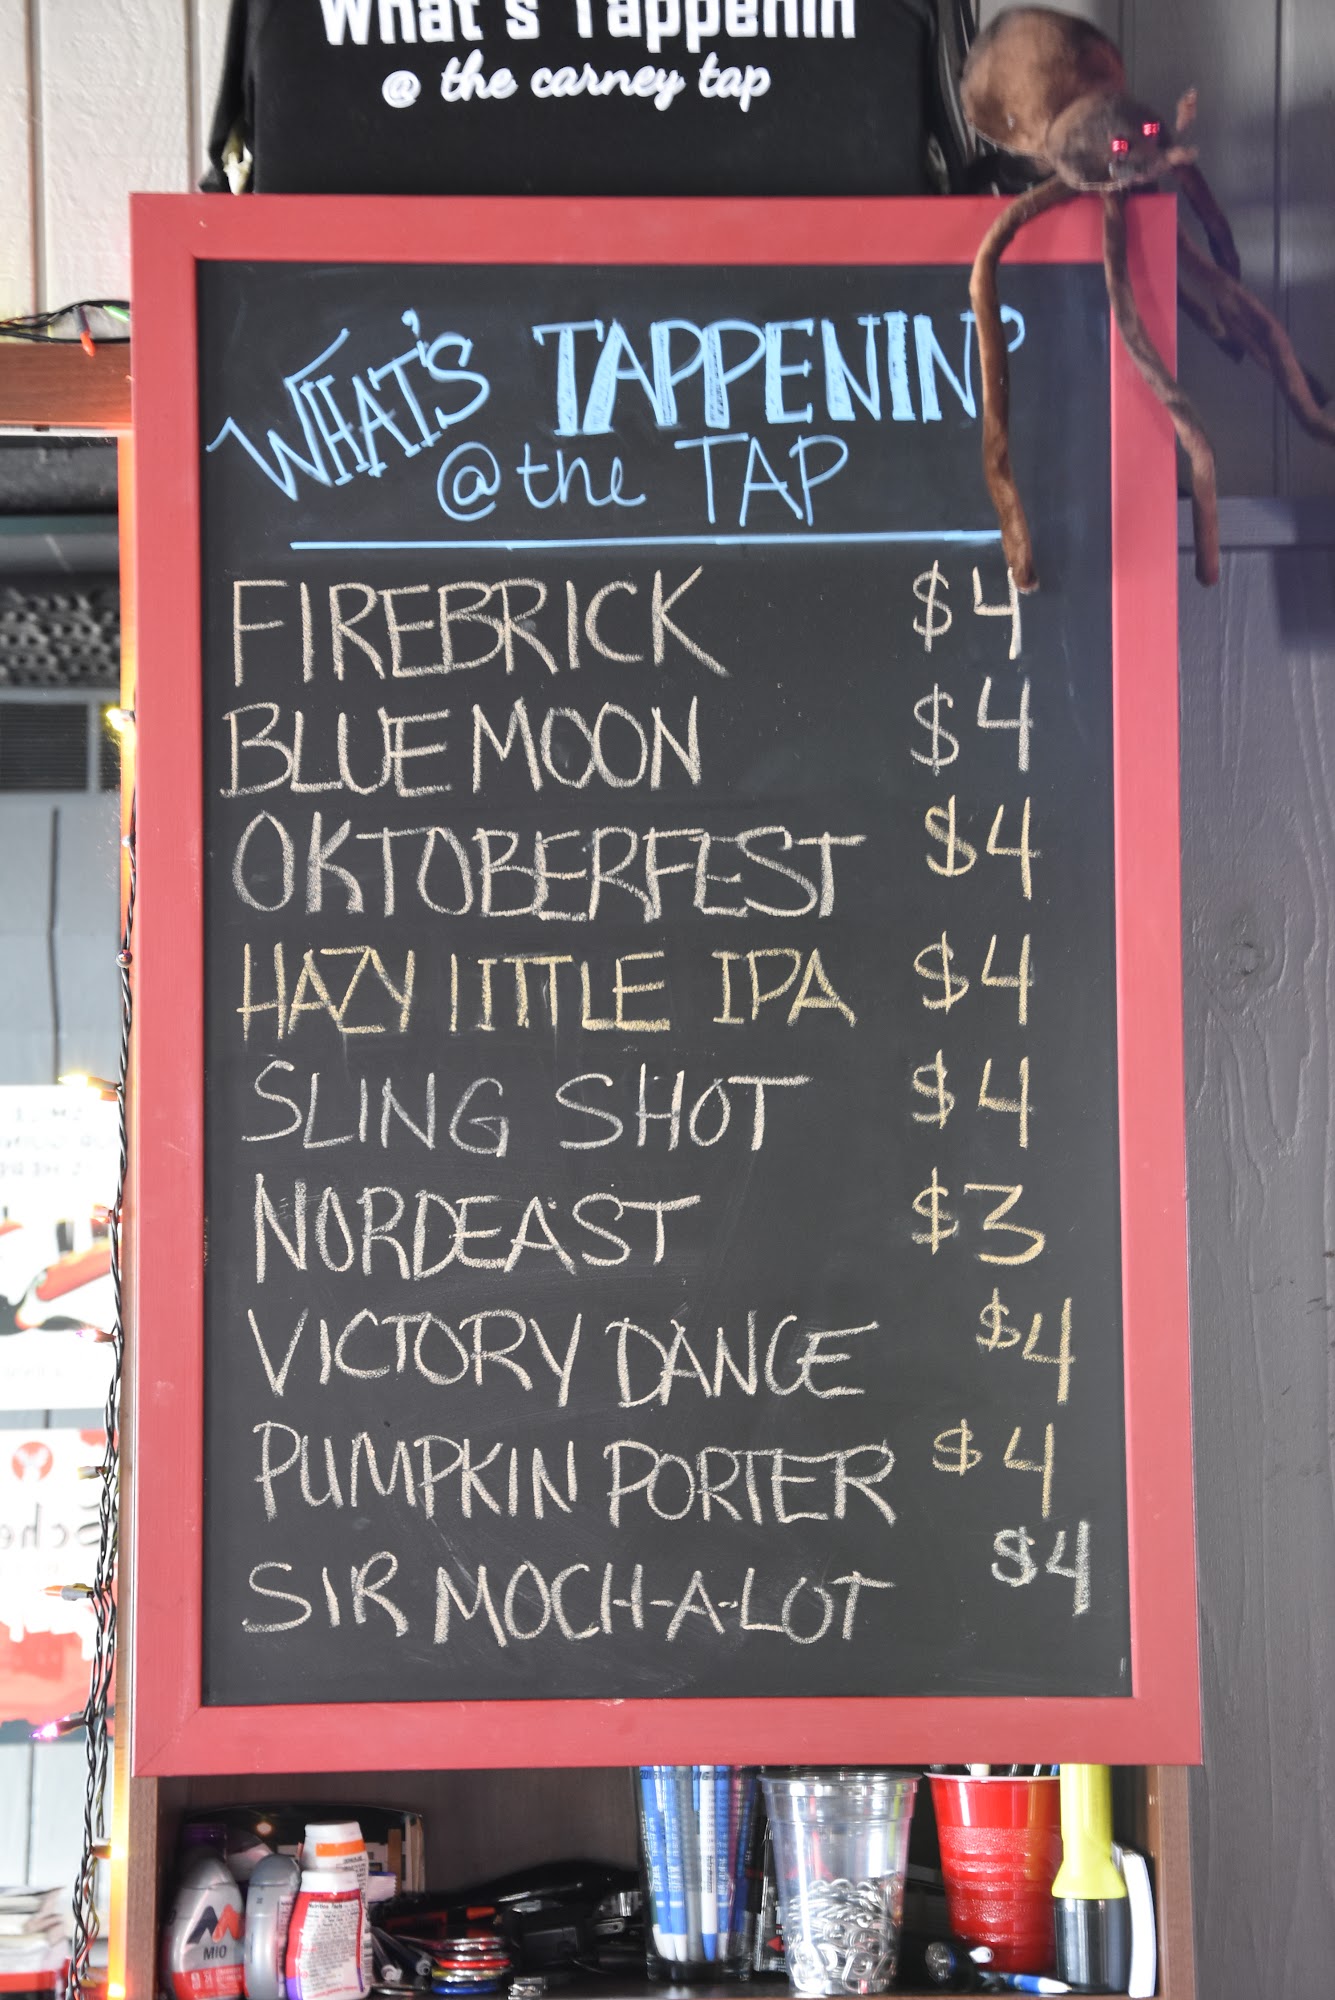 What's Tappenin
@ the carney tap
WHAT'S TAPPENIN'
@ the TAP
FIREBRICK $4
BLUE MOON $4
OKTOBERFEST $4
HAZY LITTLE IPA $4
SLING SHOT $4
NORDEAST $3
VICTORY DANCE $4
PUMPKIN PORTER $4
SIR MOCH-A-LOT $4
MIO